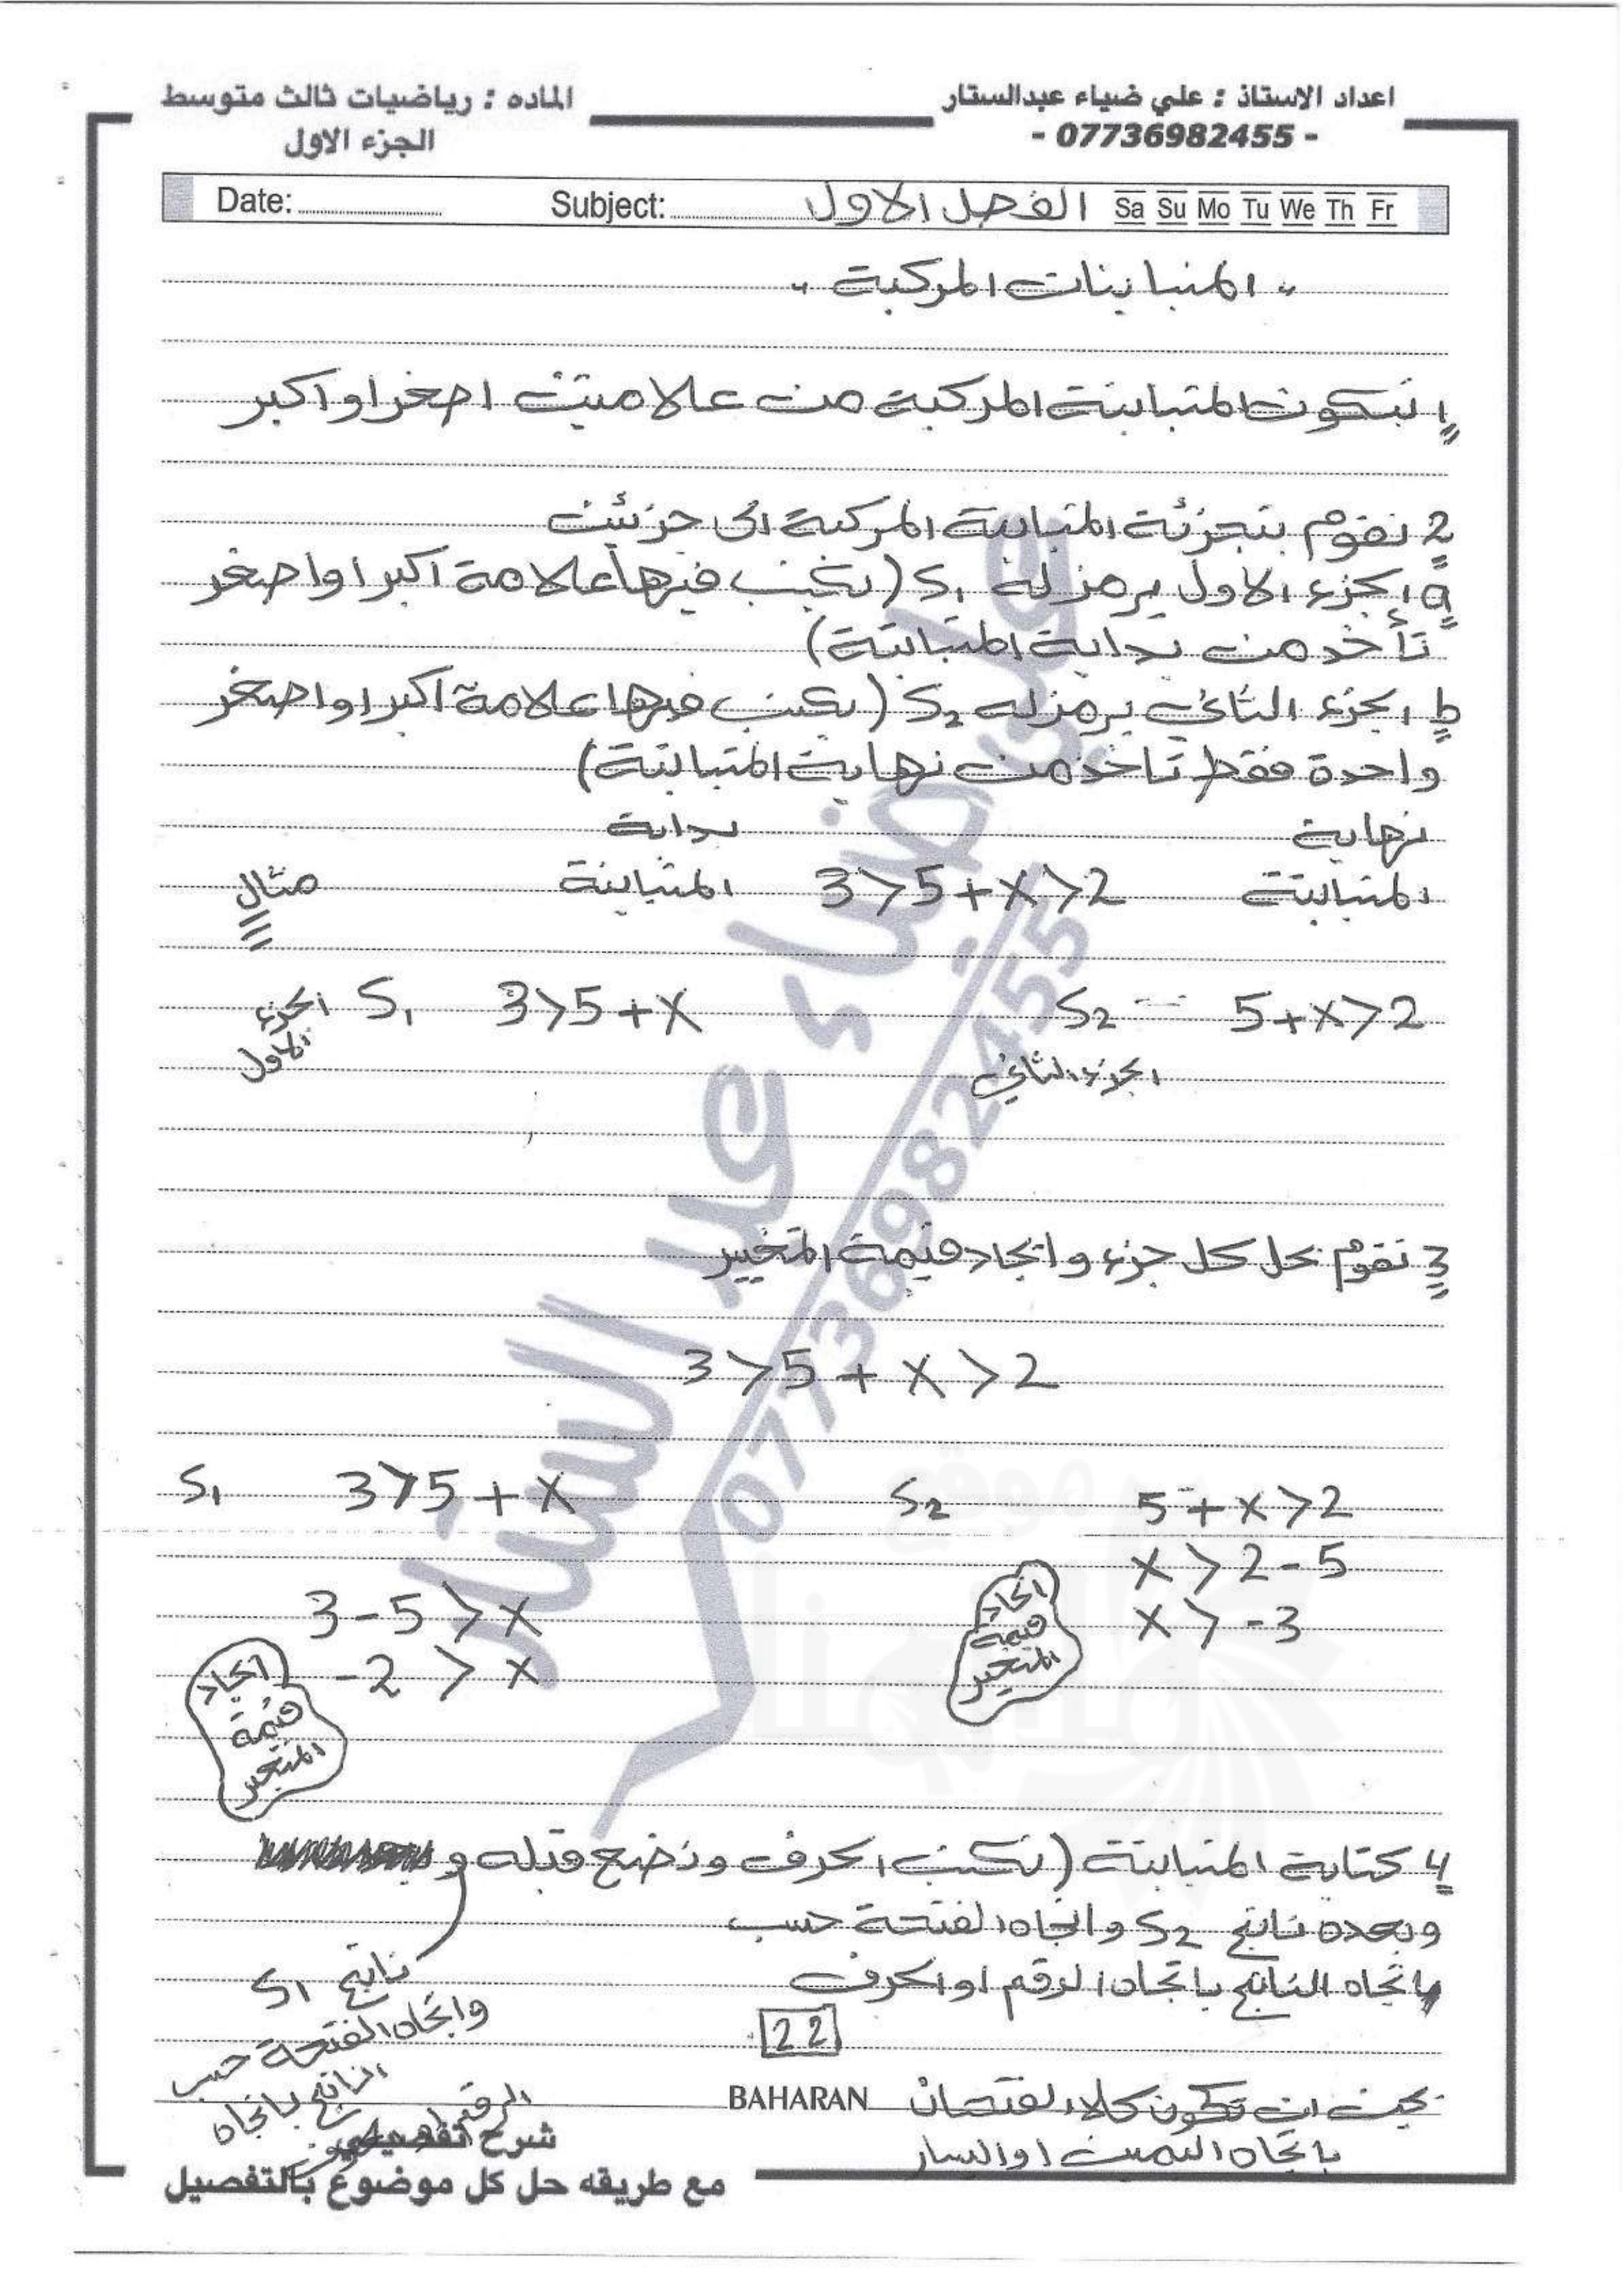 اعداد الاستاذ : علي ضياء عبدالستار
- 07736982455 -
الماده : رياضيات ثالث متوسط
الجزء الاول
Date: Subject: الفصل الاول Sa Su Mo Tu We Th Fr
" المتباينات المركبة "
1 تتكون المتباينة المركبة من علامتين اصغر او اكبر
2 نقوم بتجزئة المتباينة المركبة الى جزئين
a الجزء الاول يرمز له S₁ (نكتب فيها علامة اكبر او اصغر
تأخذ من بداية المتباينة)
b الجزء الثاني يرمز له S₂ (نكتب فيها علامة اكبر او اصغر
واحدة فقط تاخذ من نهاية المتباينة)
نهاية بداية
مثال المتباينة 3>5+x>2 المتباينة
الجزء الاول S₁ 3>5+x S₂ = 5+x>2
الجزء الثاني
3 نقوم بحل كل جزء وايجاد قيمة المتغيير
3>5+x>2
S₁ 3>5+x S₂ 5+x>2
x>2-5
3-5>x x>-3
-2>x
ايجاد قيمة المتغير
ايجاد قيمة المتغير
4 كتابة المتباينة (نكتب الحرف ونضع قبله و
وبعده ناتج S₂ واتجاه الفتحة حسب
باتجاه الناتج باتجاه الرقم او الحرف
ناتج S1
واتجاه الفتحة حسب
الناتج باتجاه
الرقم او الحرف
22
بحيث ان تكون كلا الفتحتان
باتجاه اليمين او اليسار
BAHARAN
شرح تفصيلي
مع طريقه حل كل موضوع بالتفصيل
علي ضياء عبد الستار
07736982455